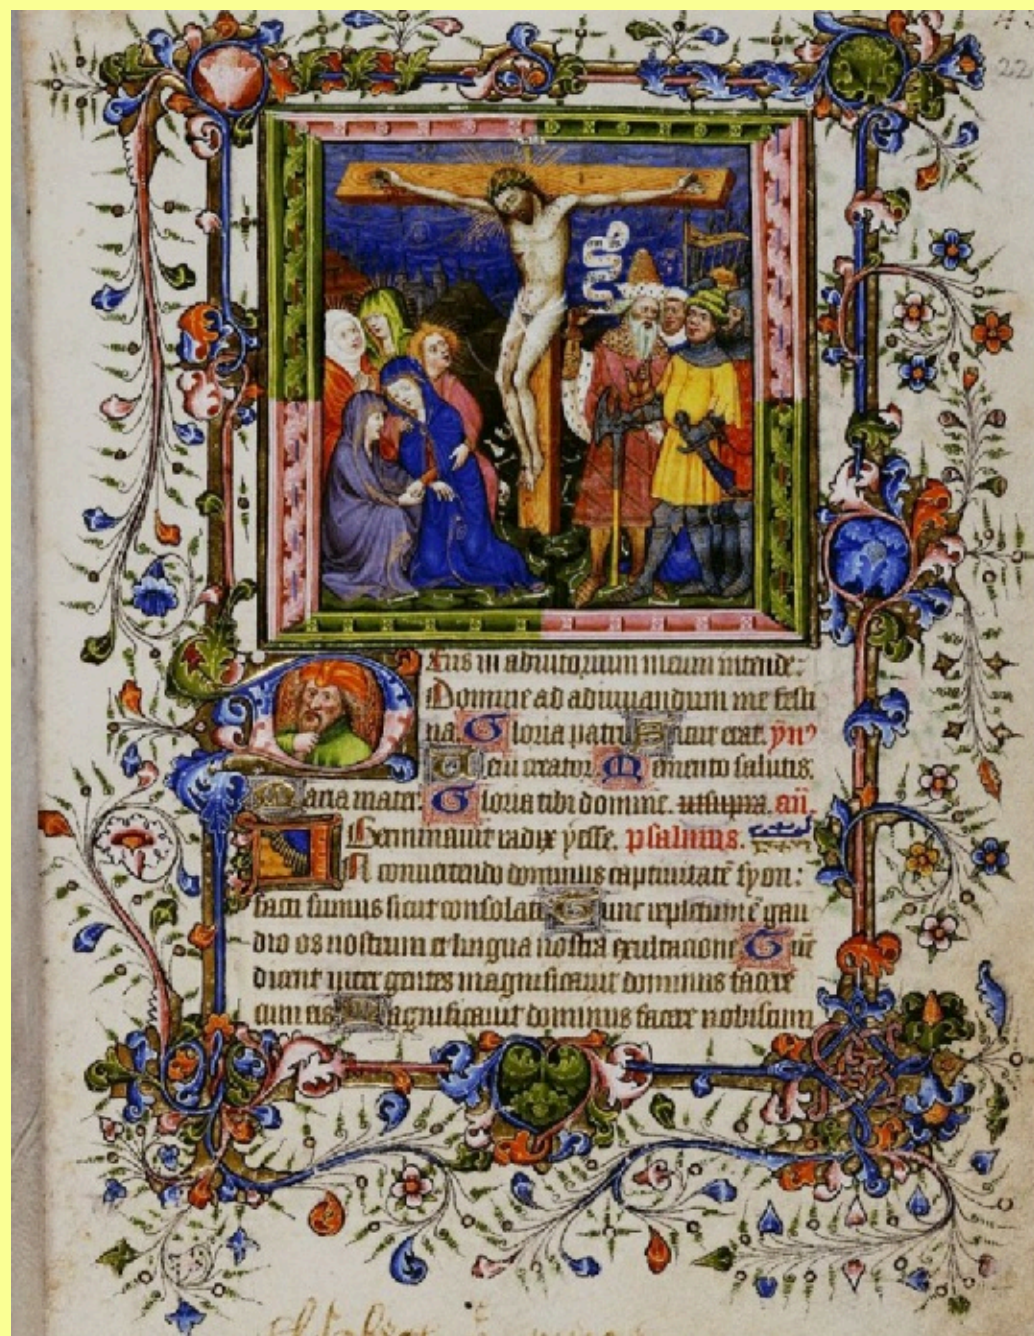 22
Deus in adiutorium meum intende:
Domine ad adiuuandum me festi
na. Gloria patri Sicut erat. ymͻ
Ueni creator. Memento salutis.
Maria mater. Gloria tibi domine. ut supra. an̄.
Germinauit radix yesse. psalmus.
In conuertendo dominus captiuitatē syon:
facti sumus sicut consolati Tunc repletum ē gau
dio os nostrum et lingua nostra exultatione Tūc
dicent inter gentes magnificauit dominus facere
cum eis Magnificauit dominus facere nobiscum